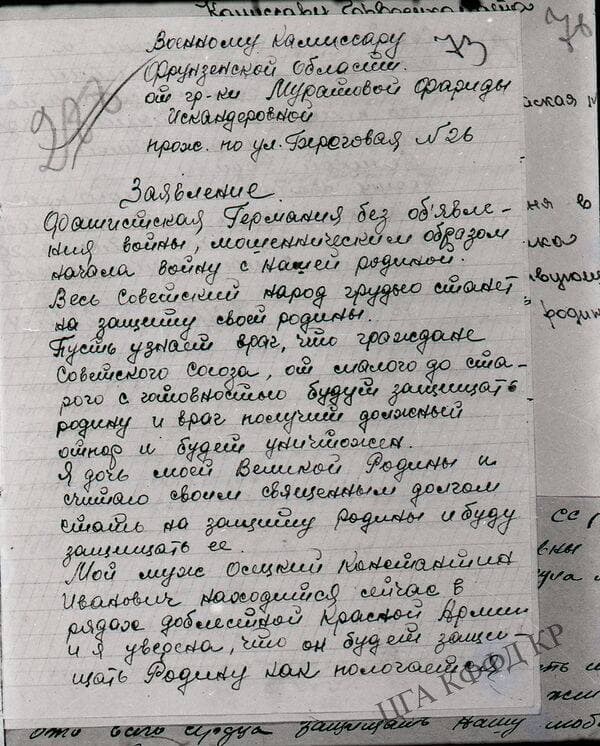 Военному Камиссару
73
76
Фрунзенской Области.
от гр-ки Муратовой Фариды
Искандеровной
прож. по ул. Береговая №26
Заявление
Фашистская Германия без об'явле-
ния войны, мошенническим образом
начала войну с нашей родиной.
Весь Советский народ грудью станет
на защиту своей родины.
Пусть узнает враг, что граждане
Советского Союза, от малого до ста-
рого с готовностью будут защищать
родину и враг получит должный
отпор и будет уничтожен.
Я дочь моей Великой Родины и
считаю своим священным долгом
стать на защиту родины и буду
защищать ее.
Мой муж Осецкий Константин
Иванович находится сейчас в
рядах доблестной Красной Армии
и я уверена, что он будет защи-
щать Родину как пологается
ЦГА КФФД КР
сердца защищать нашу